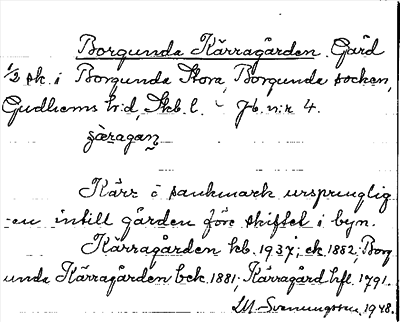 Borgunda Kärragården. Gård
1/2 sk. i Borgunda Stora, Borgunda socken,
Gudhems h:d, Skb. l. - Jb. n:r 4.
Kärr o sankmark ursprunglig-
en intill gården före skiftet i byn.
Kärragården kb. 1937; ek. 1882; Borg
unda Kärragården bek. 1881; Kärragård hfl. 1791.
Svenungsson, 1948.